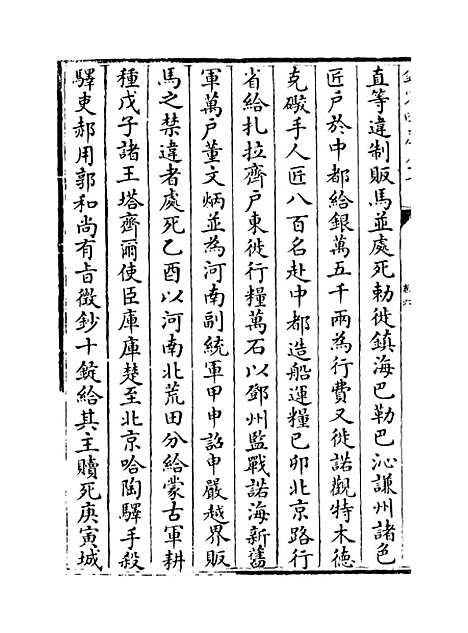 直等違制販馬並處死勅徙鎮海巴勒巴沁謙州諸色
匠戶於中都給銀萬五千兩為行費又徙諾觀特木德
克礮手人匠八百名赴中都造船運糧己卯北京路行
省給扎拉齊戶東徙行糧萬石以鄧州監戰諾海新舊
軍萬戶董文炳並為河南副統軍甲申詔申嚴越界販
馬之禁違者處死乙酉以河南北荒田分給蒙古軍耕
種戊子諸王塔齊爾使臣庫庫楚至北京哈陶驛手殺
驛吏郝用郭和尚有旨徴鈔十錠給其主贖死庚寅城